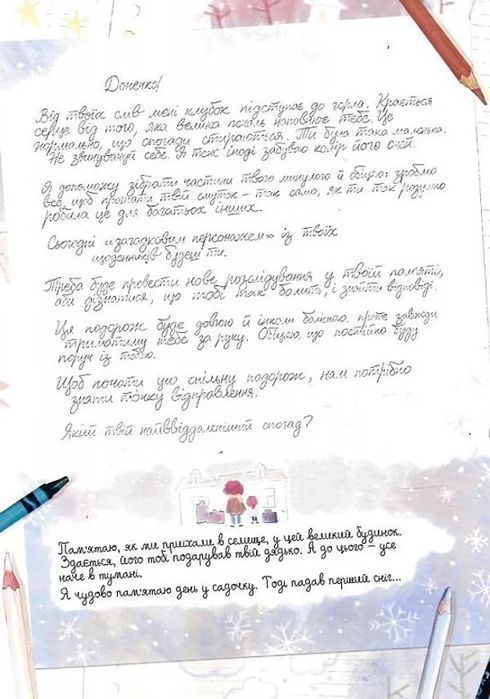 Донечко!
Від твоїх слів мені клубок підступає до горла. Крається
серце від того, яка велика печаль наповнює тебе. Це
нормально, що спогади стираються. Ти була така маленька.
Не звинувачуй себе. Я теж іноді забуваю колір його очей.
Я допоможу зібрати частини твого минулого й обіцяю: зроблю
все, щоб прогнати твій смуток – так само, як ти так розумно
робила це для багатьох інших.
Сьогодні «загадковим персонажем» із твоїх
щоденників будеш ти.
Треба буде провести нове розслідування у твоїй пам'яті,
аби дізнатися, що тобі так болить, і знайти відповіді.
Ця подорож буде довгою й інколи болісною, проте завжди
триматиму тебе за руку. Обіцяю, що постійно буду
поруч із тобою.
Щоб почати цю спільну подорож, нам потрібно
знати точку відправлення.
Який твій найвіддаленіший спогад?
Пам'ятаю, як ми приїхали в селище, у цей великий будинок.
Здається, його тобі подарував твій дядько. А до цього – усе
наче в тумані.
Я чудово пам'ятаю день у садочку. Тоді падав перший сніг...